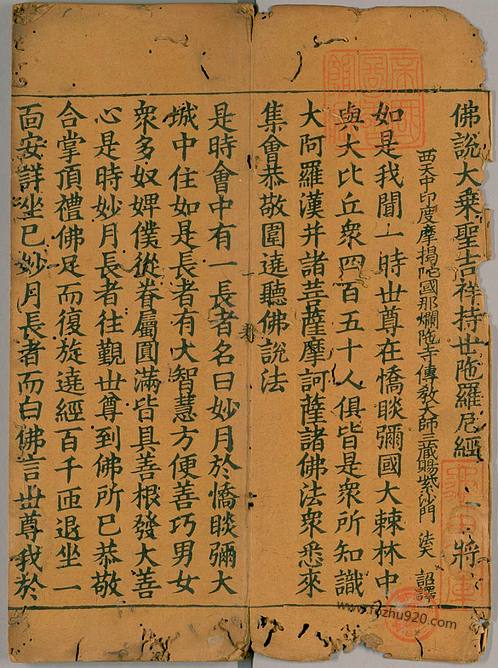 佛說大乗聖吉祥持世陁羅尼經　將
西天中印度摩揭陁國那爛陁寺傳敎大師三藏賜紫沙門　法天　詔譯
如是我聞一時世尊在憍睒彌國大棘林中
與大比丘衆四百五十人俱皆是衆所知識
大阿羅漢并諸菩薩摩訶薩諸佛法衆悉來
集會恭敬圍遶聽佛說法
是時會中有一長者名曰妙月於憍睒彌大
城中住如是長者有大智慧方便善巧男女
衆多奴婢僕從眷屬圓滿皆具善根發大善
心是時妙月長者往觀世尊到佛所已恭敬
合掌頂禮佛足而復旋遶經百千匝退坐一
面安詳坐已妙月長者而白佛言世尊我於
www.fozhu920.com